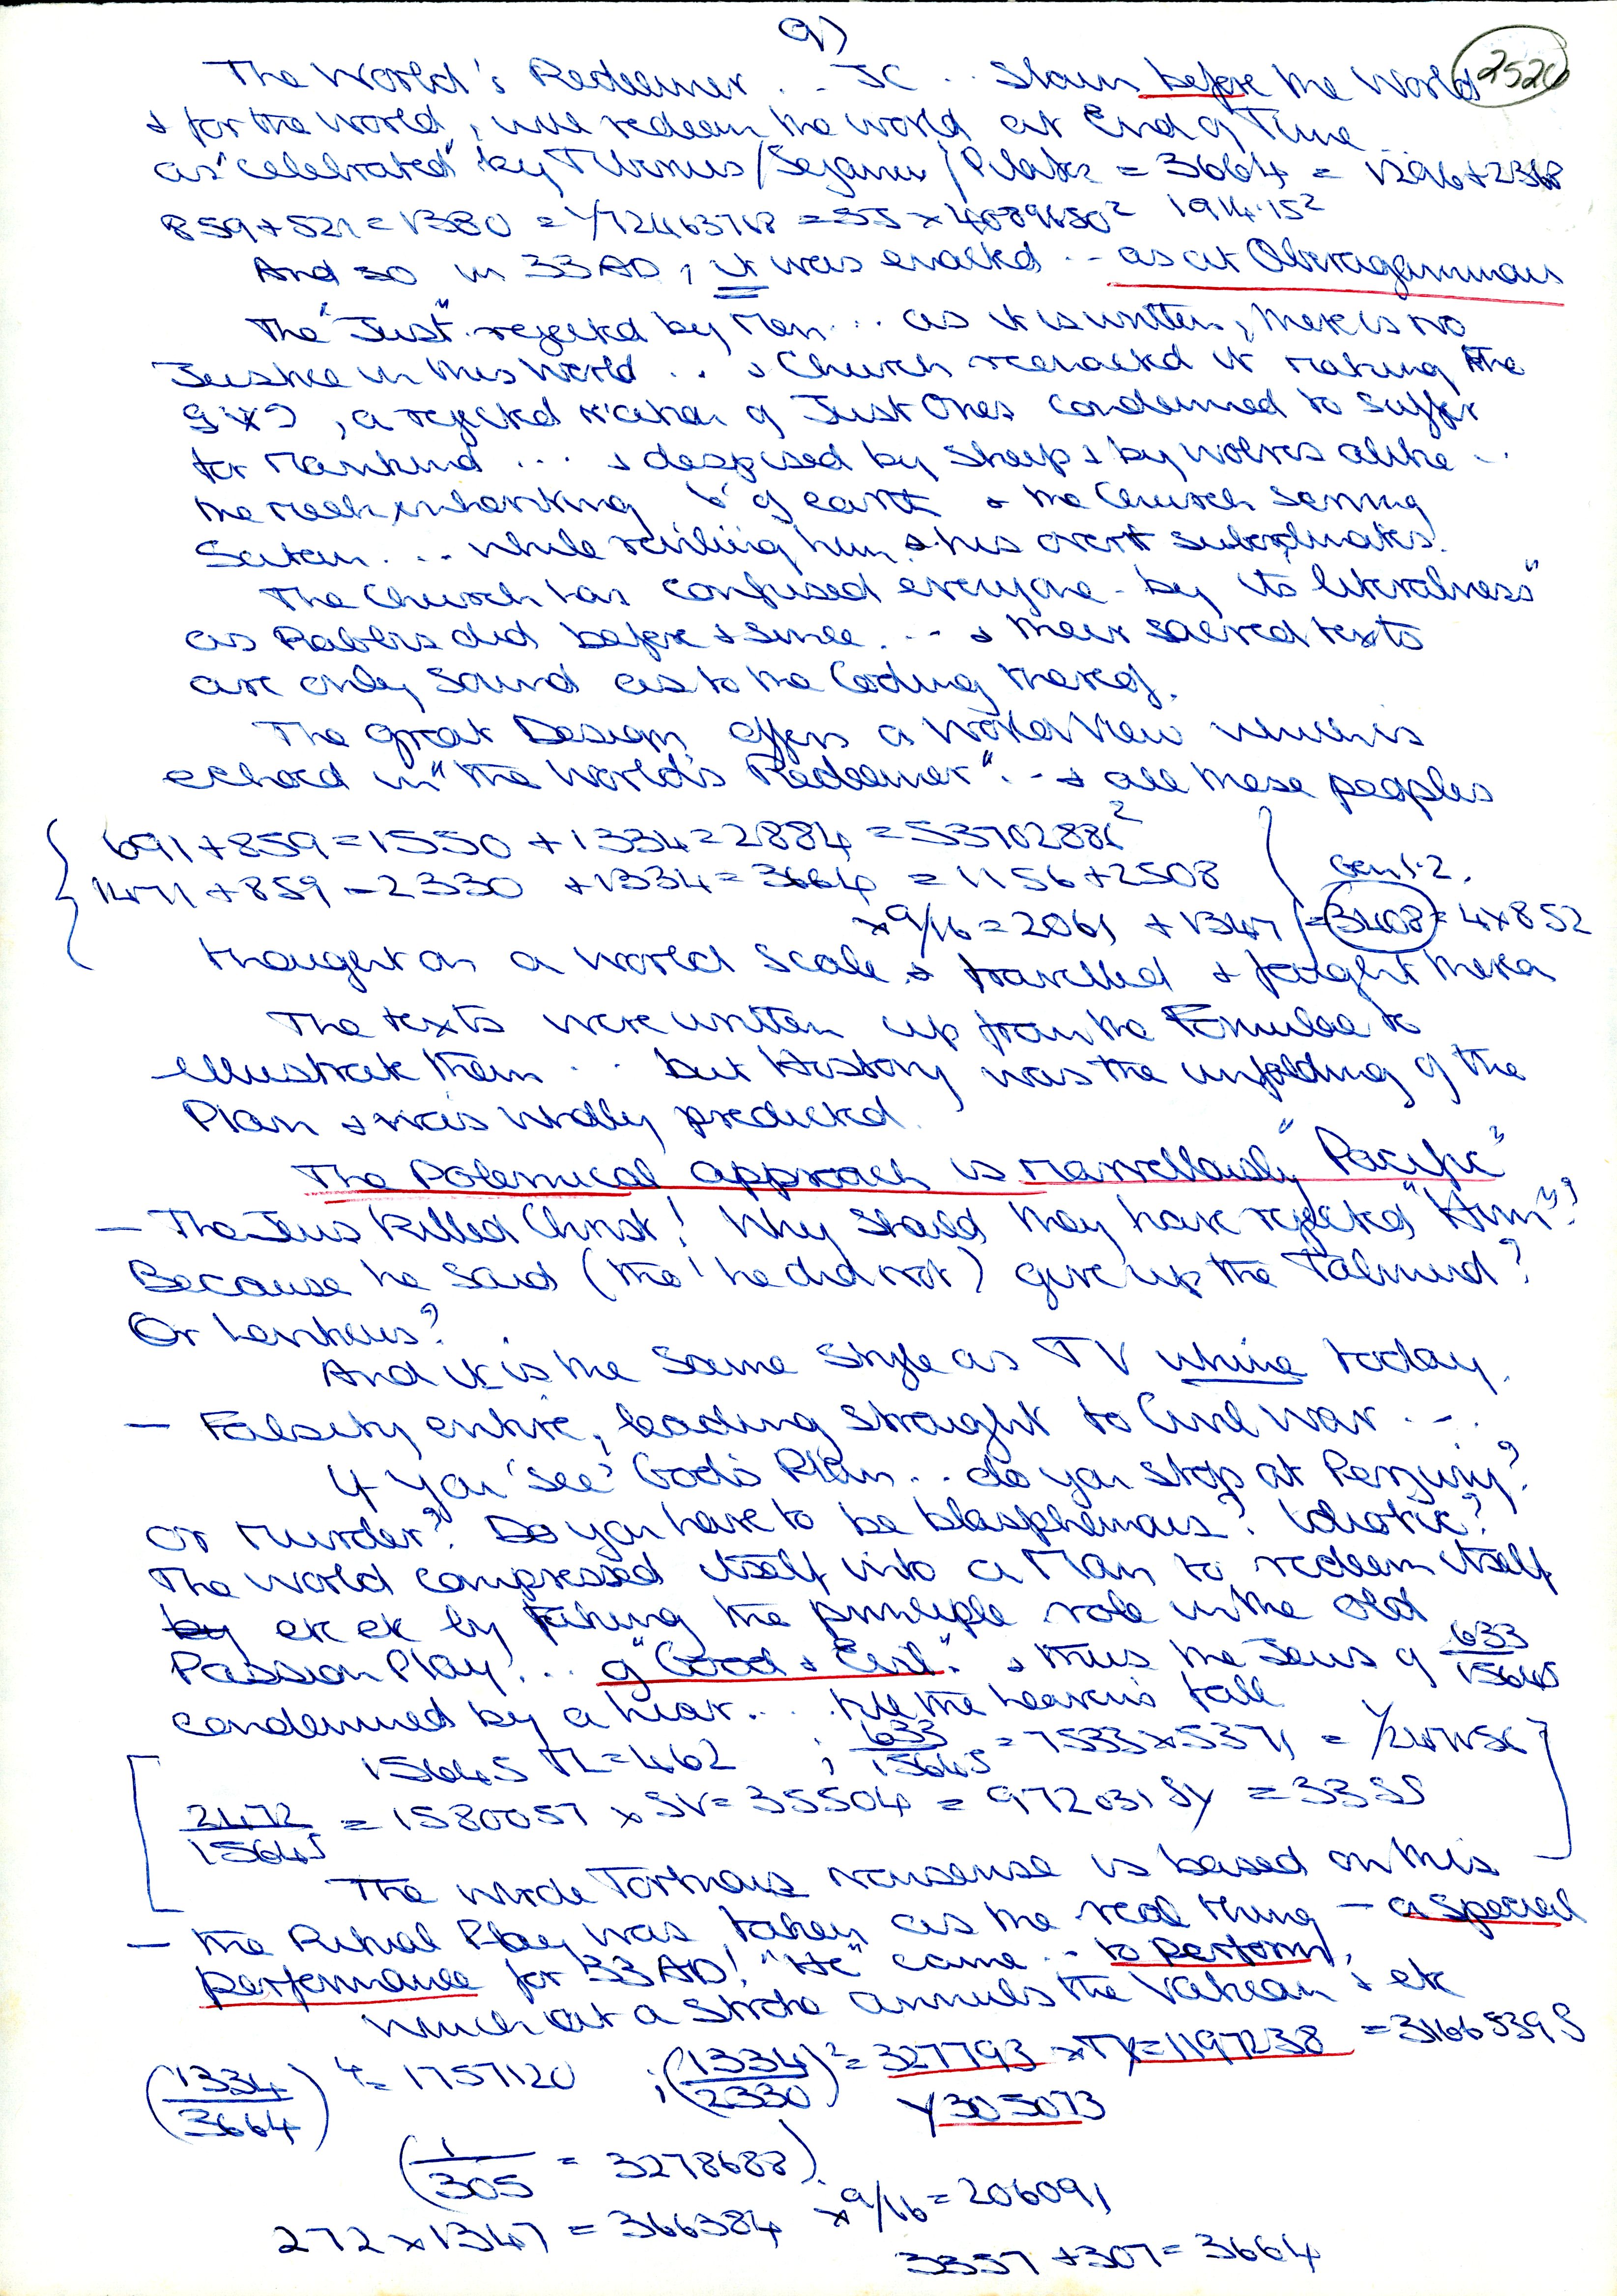 9)
2526
The World's Redeemer .. JC .. Slain before the World
& for the World, will redeem the world at End of Time ..
as "celebrated" by Tiberius/Sejanus/Pilate = 3664 = 1296+2368
859+521=1380 = 1/72463768 = SJ × 4689650² 1914.15²
And so in 33AD, it was enacted .. as at Oberammergau
The "Just" rejected by Men ... as it is written, there is no
Justice in this World .. & Church reenacted it making the
, a rejected nation of Just Ones condemned to suffer
for Mankind ... & despised by sheep & by wolves alike ..
the meek inheriting of earth & the Church serving
Satan ... while reviling him & his overt subordinates.
The Church has confused everyone - by its literalness"
as Rabbis did before & since ... & their sacred texts
are only sound as to the Coding thereof.
The great Design offers a World View which is
echoed in "the World's Redeemer" .. & all these peoples
691+859=1550 +1334=2884 = 53702886²
1471+859=2330 +1334=3664 = 1156+2508
Gen 1.2.
×9/16 = 2061 + 1347 = 3408 = 4×852
thought on a World scale & travelled & fought thereon
The texts were written up from the Formulae to
illustrate them .. but History was the unfolding of the
Plan & was widely predicted.
The Polemical approach is marvellously "Pacific"
— The Jews killed Christ! Why should they have rejected "Him"?
Because he said (tho' he did not) give up the Talmud?
Or Leviticus?
And it is the same style as TV whine today.
— Falsity entire, leading straight to Civil War ...
If you 'see' God's Plan .. do you stop at Perjury?
or Murder? Do you have to be blasphemous? Idiotic?
The World compressed itself into a Man to redeem itself
by etc etc by taking the principle role in the old
Passion Play! .. of "Good & Evil". & thus the Jews of 633/15645
condemned by a liar ... till the heavens fall
15645 TL=462 ; 633/15645 = 7533×5371 =
2472/15645 = 1580057 × SV= 35504 = 972031 SY = 33SS
The whole Tortuous nonsense is based on this
— the Ritual Play was taken as the real thing - a special
performance for 33AD! "He" came .. to perform,
which at a stroke annuls the Vatican & etc
(1334/3664)⁴ = 1757120 ; (1334/2330)² = 327793 × TX=1197238 = 3166539 S
Y305073
(1/305 = 3278688)
272×1347 = 366384 ×9/16 = 206091
3357 +307= 3664